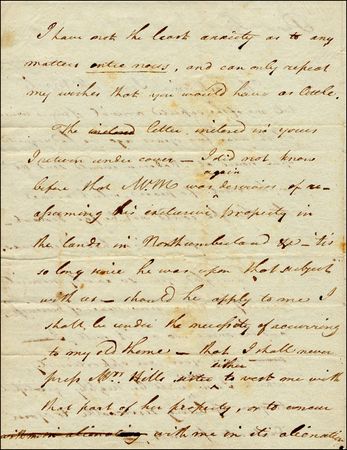 I have not the least anxiety as to any
matters entre nous, and can only repeat
my wishes that you would have as little.
The inclosed letter inclosed in yours
I return under cover – I did not know
again
before that Mr M was desirous of re-
assuming his exclusive property in
the lands in Northumberland &c – 'tis
so long since he was upon that subject
with us – should he apply to me I
shall be under the necessity of recurring
to my old theme – that I shall never
either
press Mrs Hills sister to vest me with
that part of her property, or to concur
with me in alienating with me in its alienation